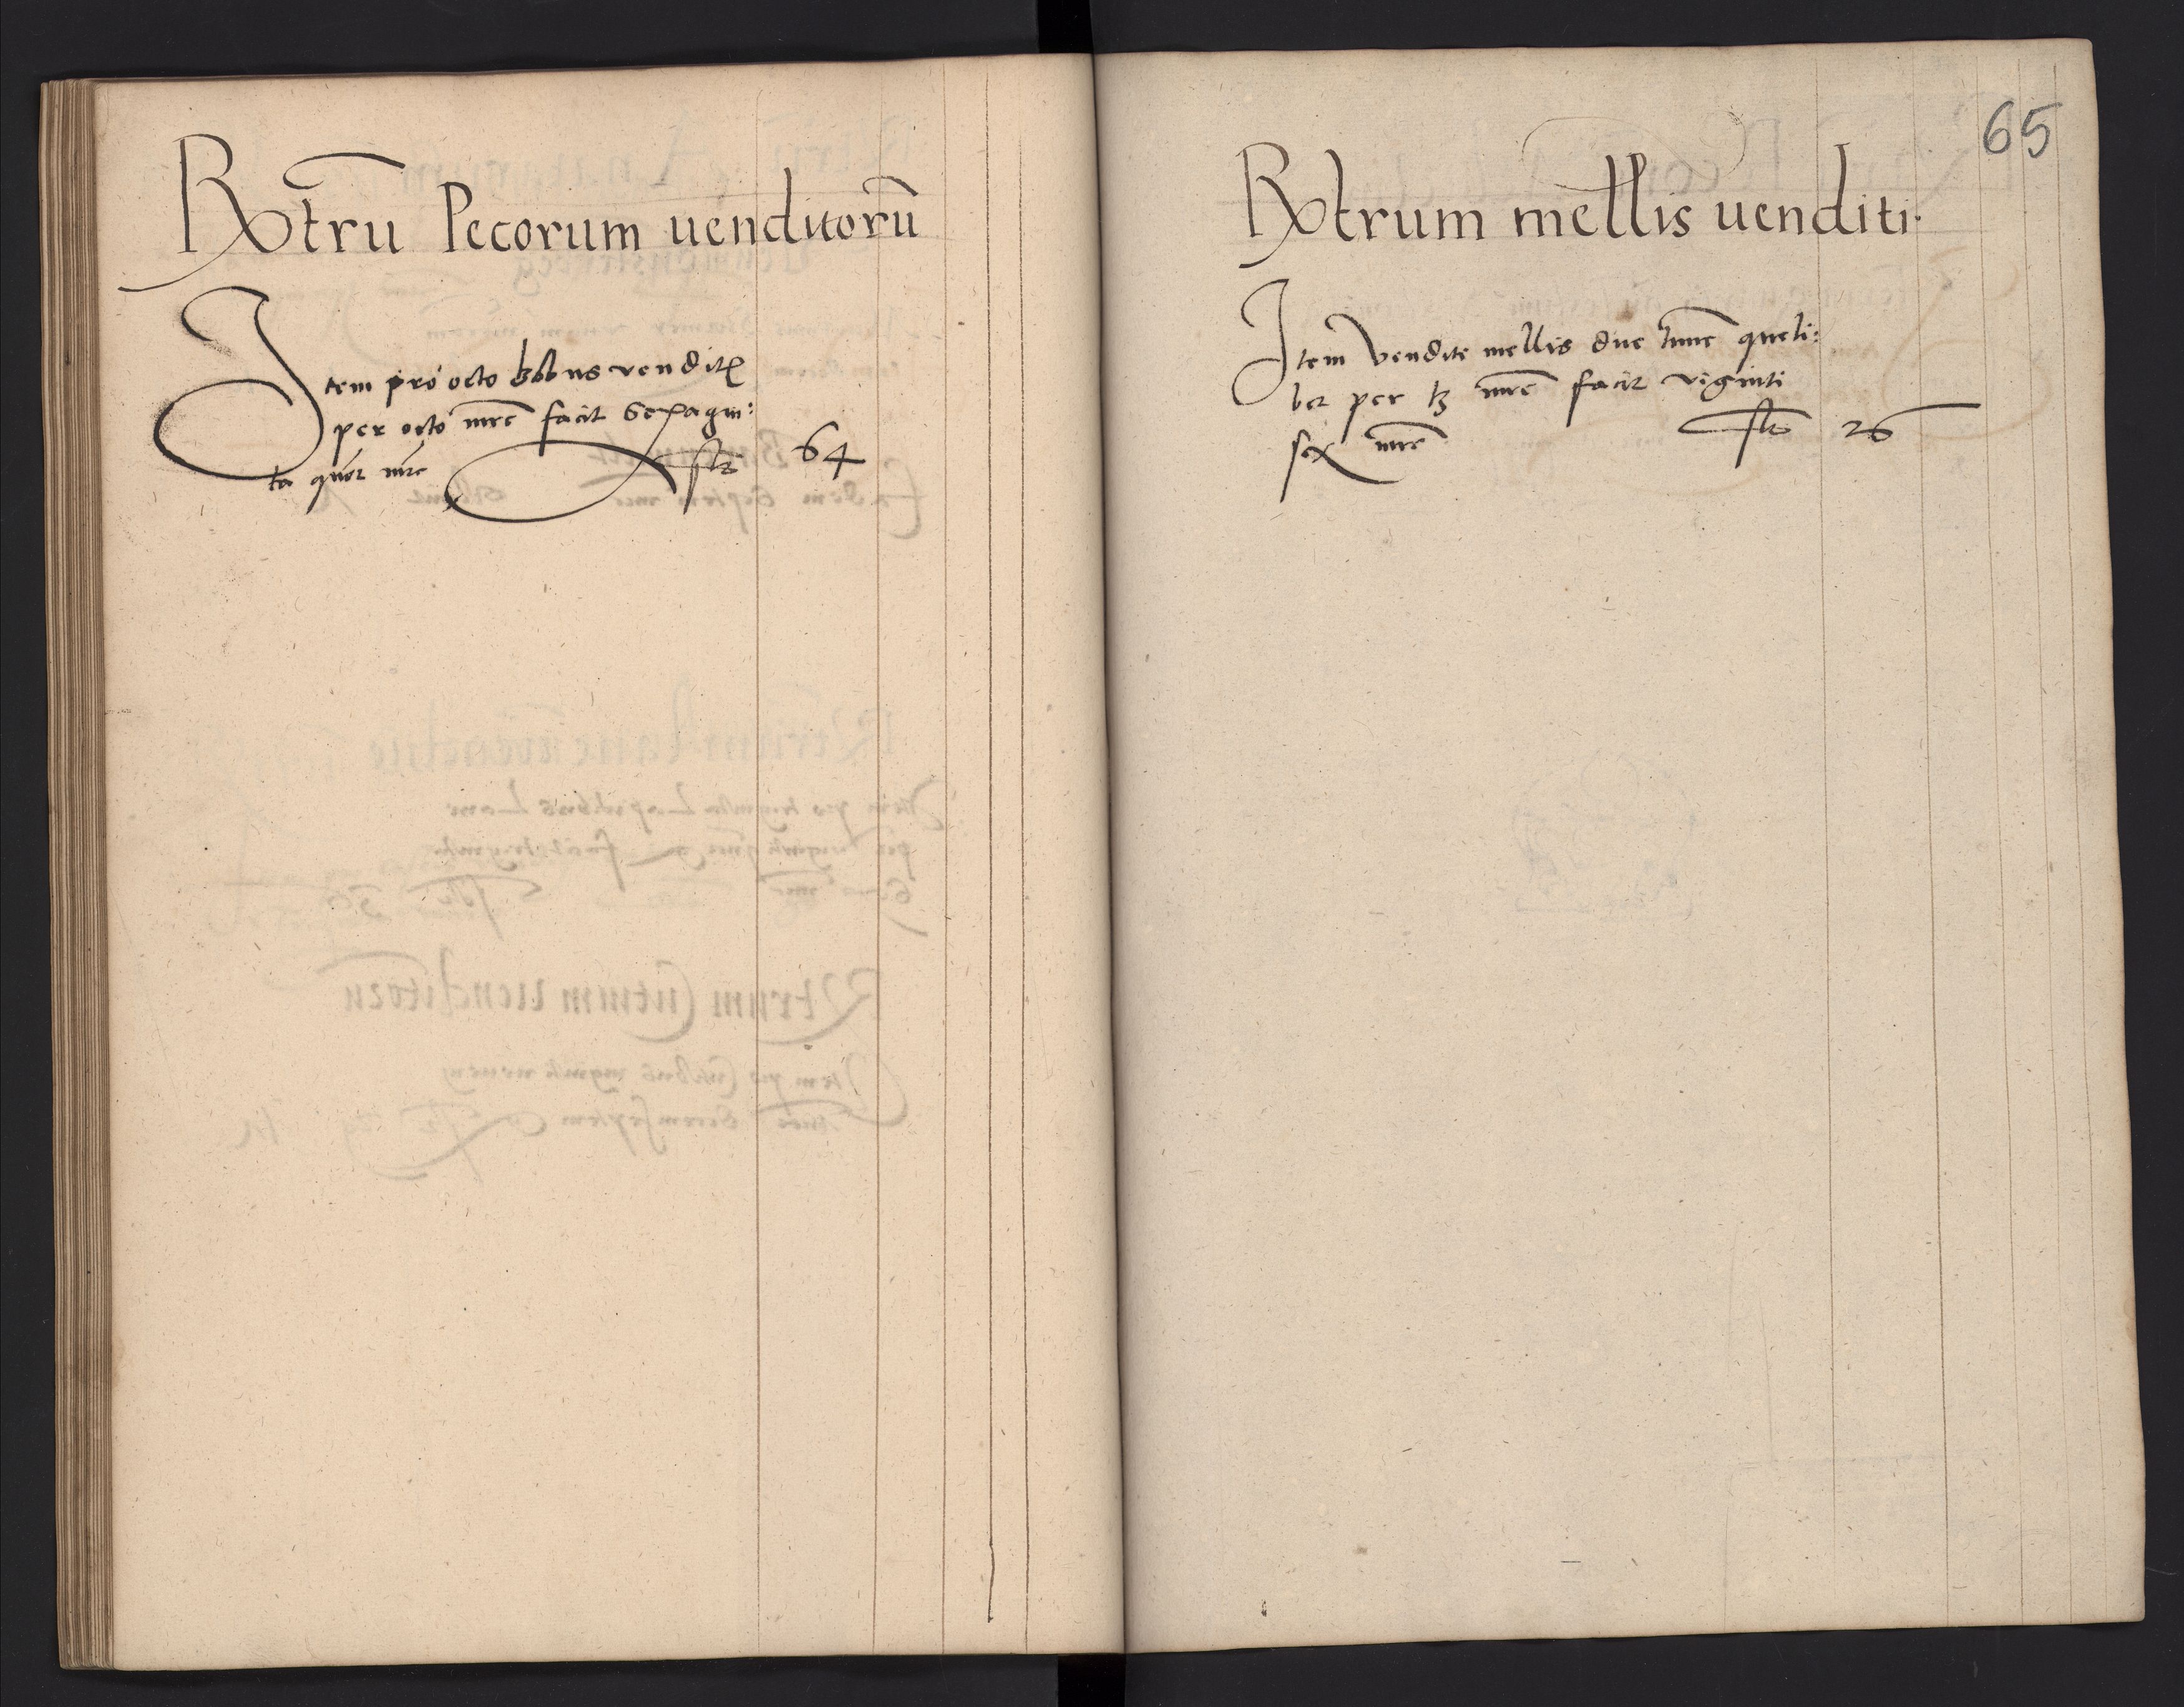 Rtrū Pecorum uenditorū
Item pro octo bobus vendit
per octo mrc facit Sexagin:
ta quor mrc flo 64
65
Rtrum mellis uenditi.
Item vendite mellis due tune queli:
bet per 13 mrc facit viginti
sex mrc flo 26